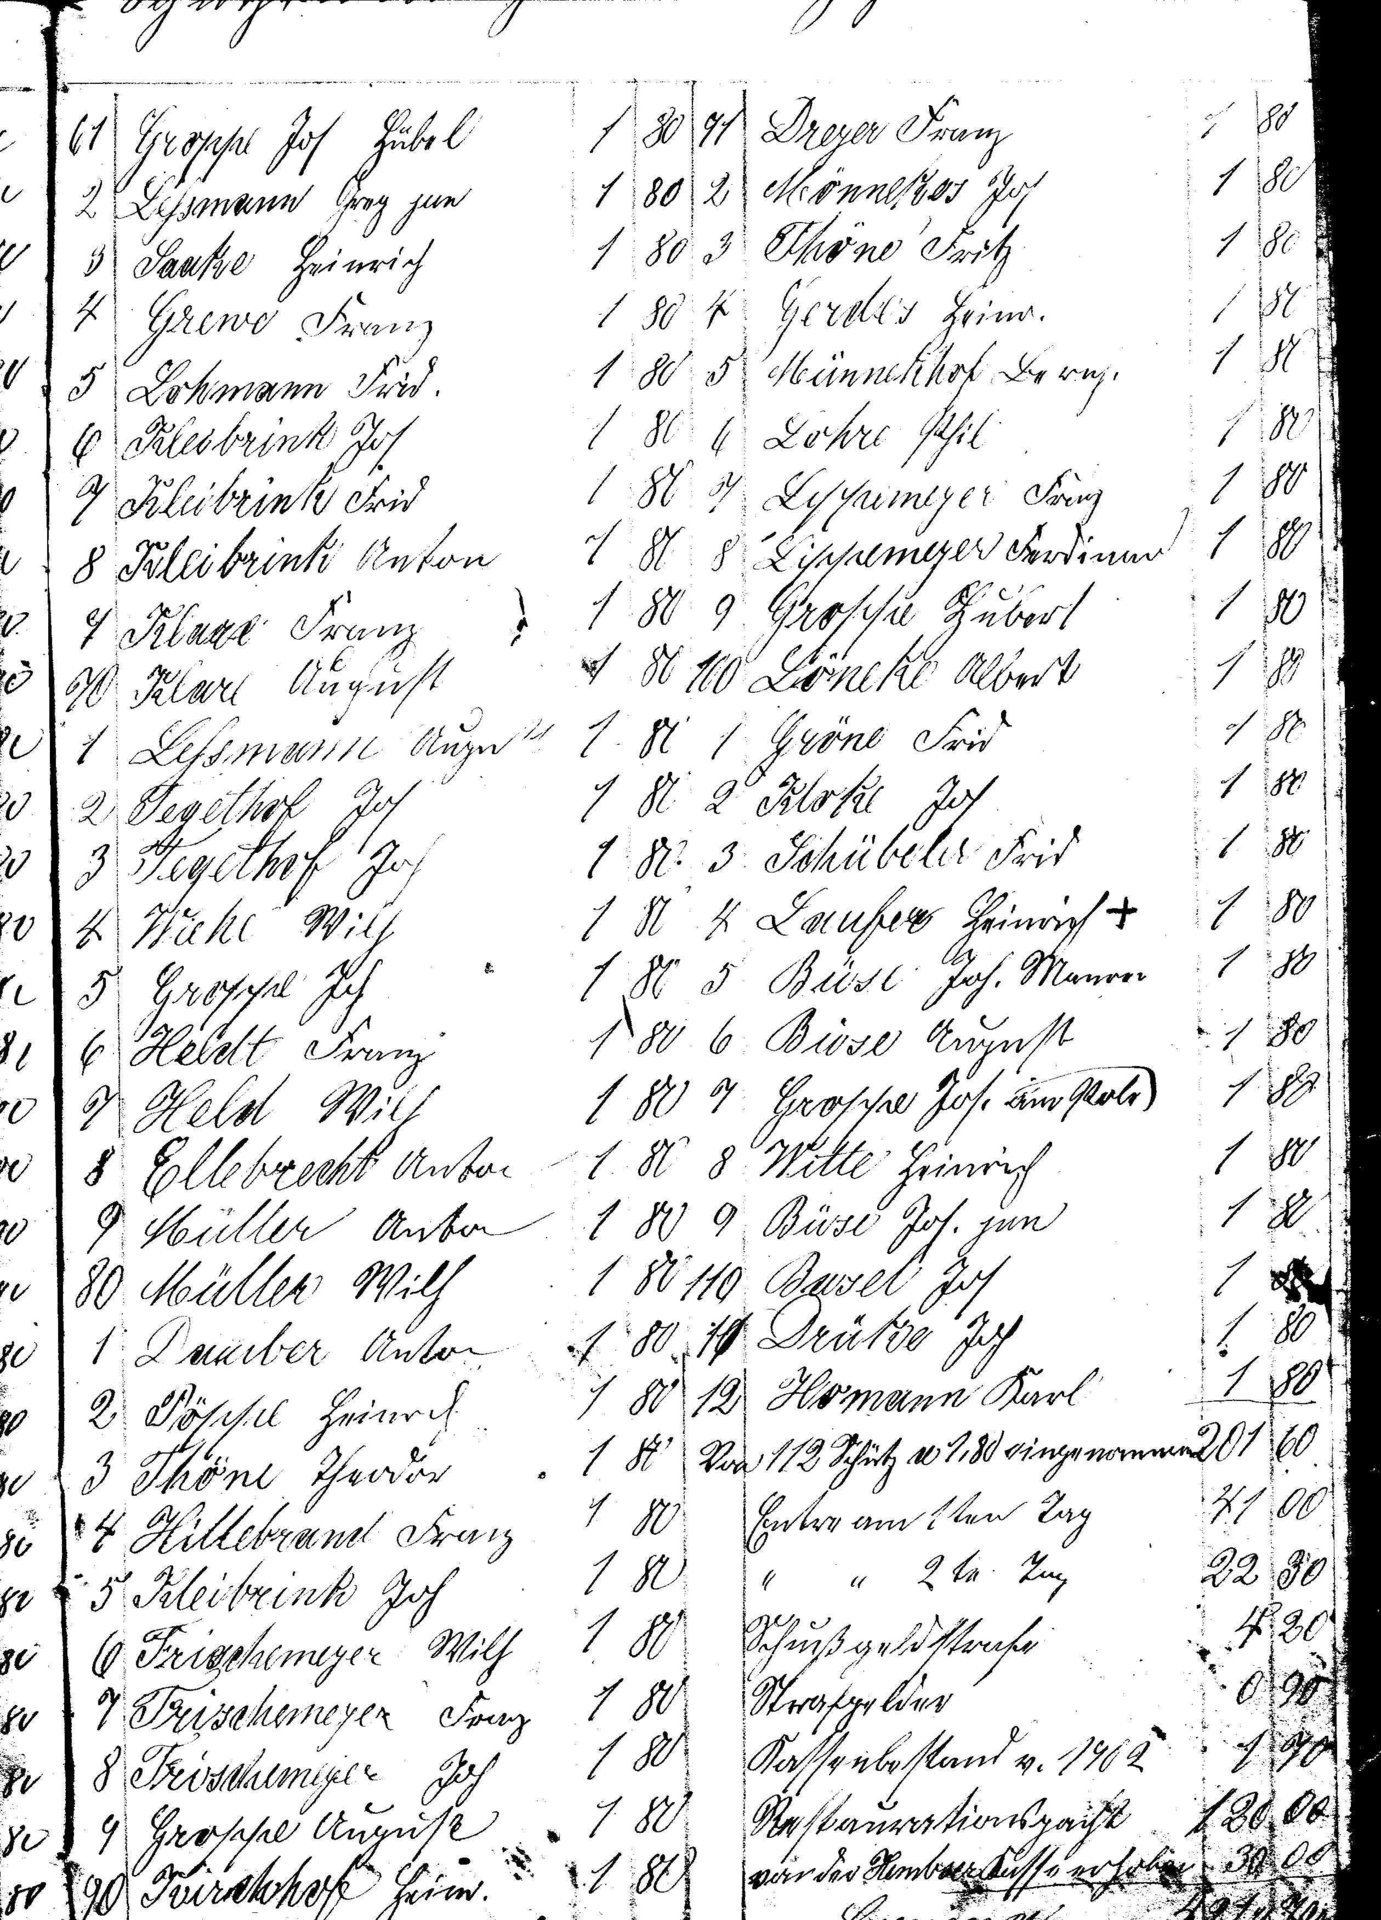 61 Groppe Jos Hübel 1 80
2 Lessmann Greg jun 1 80
3 Saake Heinrich 1 80
4 Grewe Franz 1 80
5 Lohmann Frid. 1 80
6 Kleibrink Jos 1 80
7 Kleibrink Frid 1 80
8 Kleibrink Anton 1 80
9 Klare Franz 1 80
70 Klare August 1 80
1 Lessmann August 1 80
2 Tegethof Jos 1 80
3 Tegethof Joh 1 80
4 Wilh 1 80
5 Groppe Joh 1 80
6 Heldt Franz 1 80
7 Held Wilh 1 80
8 Ellebrecht Anton 1 80
9 Müller Anton 1 80
80 Müller Wilh 1 80
1 Anton 1 80
2 Pöppel Heinrich 1 80
3 Thöne Theodor 1 80
4 Hillebrand Franz 1 80
5 Kleibrink Joh 1 80
6 Frischemeyer Wilh 1 80
7 Frischemeyer Franz 1 80
8 Frischemeyer Joh 1 80
9 Groppe August 1 80
90 Kirchhof Heinr. 1 80
91 Dreyer Franz 1 80
2 Mönnekes Jos 1 80
3 Thöne Fritz 1 80
4 Gerdes Heinr. 1 80
5 Münnekhof Bernh. 1 80
6 Lohre Phil 1 80
7 Lippemeyer Franz 1 80
8 Lippemeyer Ferdinand 1 80
9 Groppe Hubert 1 80
100 Löneke Albert 1 80
1 Gröne Frid 1 80
2 Kloke Jos 1 80
3 Schübeler Frid 1 80
4 Laufer Heinrich + 1 80
5 Büse Joh. Maurer 1 80
6 Büse August 1 80
7 Groppe Jos. 1 80
8 Witte Heinrich 1 80
9 Büse Jos. jun 1 80
110 Basel Jos 1 80
11 Drüke Joh 1 80
12 Homann Karl 1 80
Von 112 Schütz a 1,80 eingenommen 201 60
Entre am 1ten Tag 41 00
" " 2te Tag 22 30
Schußgeldstrafe 4 20
Strafgelder 0 90
Kassenbestand v. 1902 1 70
Restaurationspacht 120 00
von der Kasse erhoben 30 00